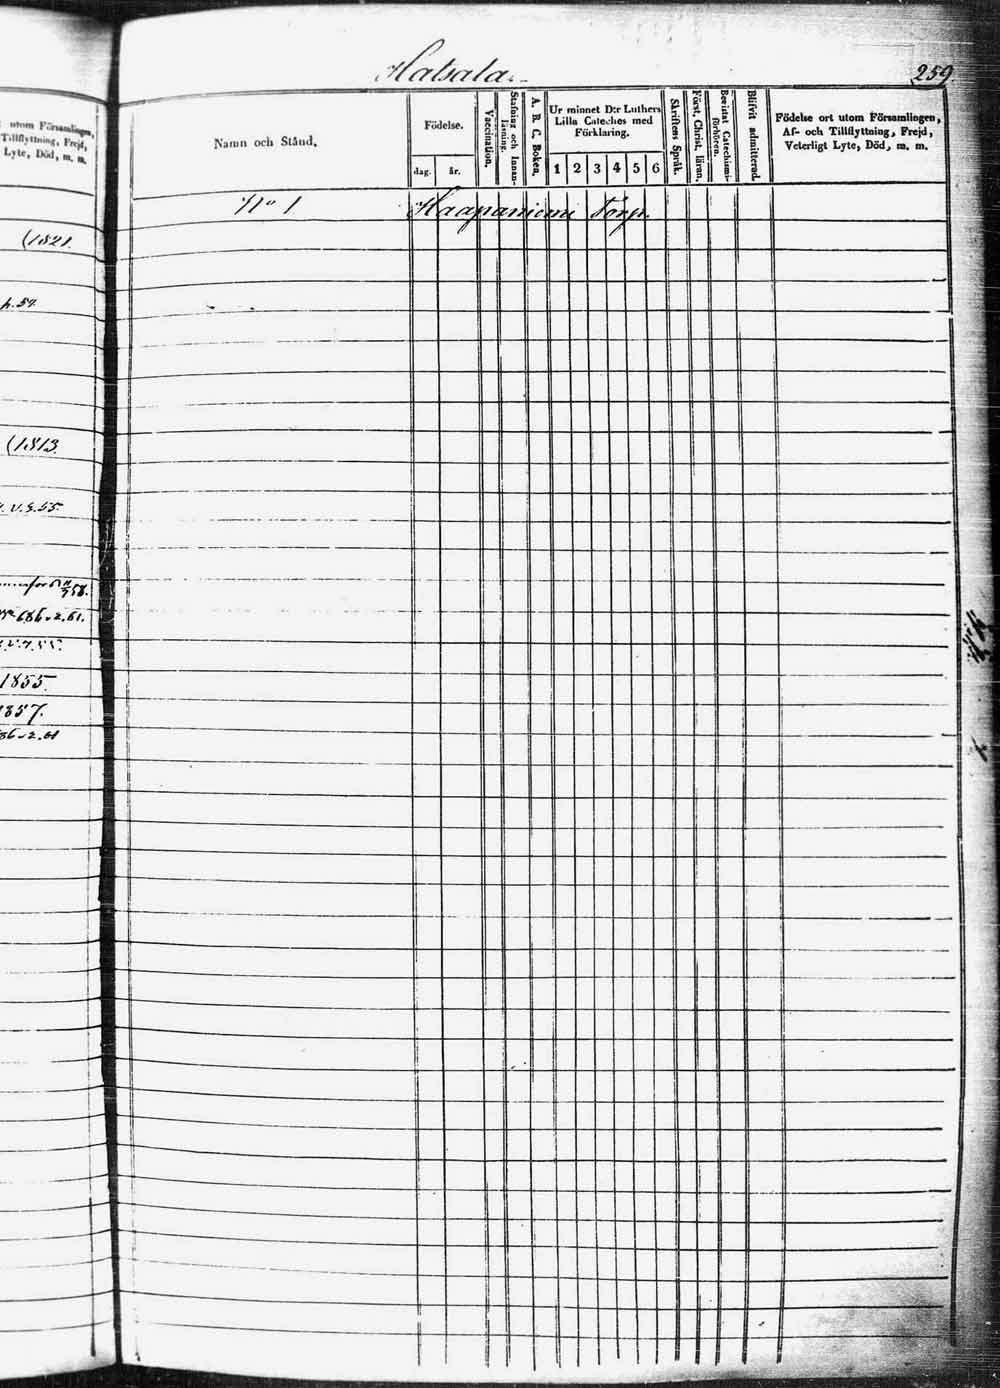 Hatsala.
259.
utom Församlingen,
Tillflyttning, Frejd,
Lyte, Död, m. m.
Namn och Stånd.
Födelse.
dag. år.
Vaccination.
Stafning och Innan-
läsning.
A. B. C. Boken.
Ur minnet D:r Luthers
Lilla Cateches med
Förklaring.
1 2 3 4 5 6
Skriftens Språk.
Först. Christ. läran.
Bevistat Catechismi-
förhören.
Blifvit admitterad.
Födelse ort utom Församlingen,
Af- och Tillflyttning, Frejd,
Veterligt Lyte, Död, m. m.
No 1 Haapaniemi Torp.
(1821.
p. 57.
(1813.
v. 3. 55.
58.
686 v. 2. 61.
1855.
1857.
86 v 2. 61